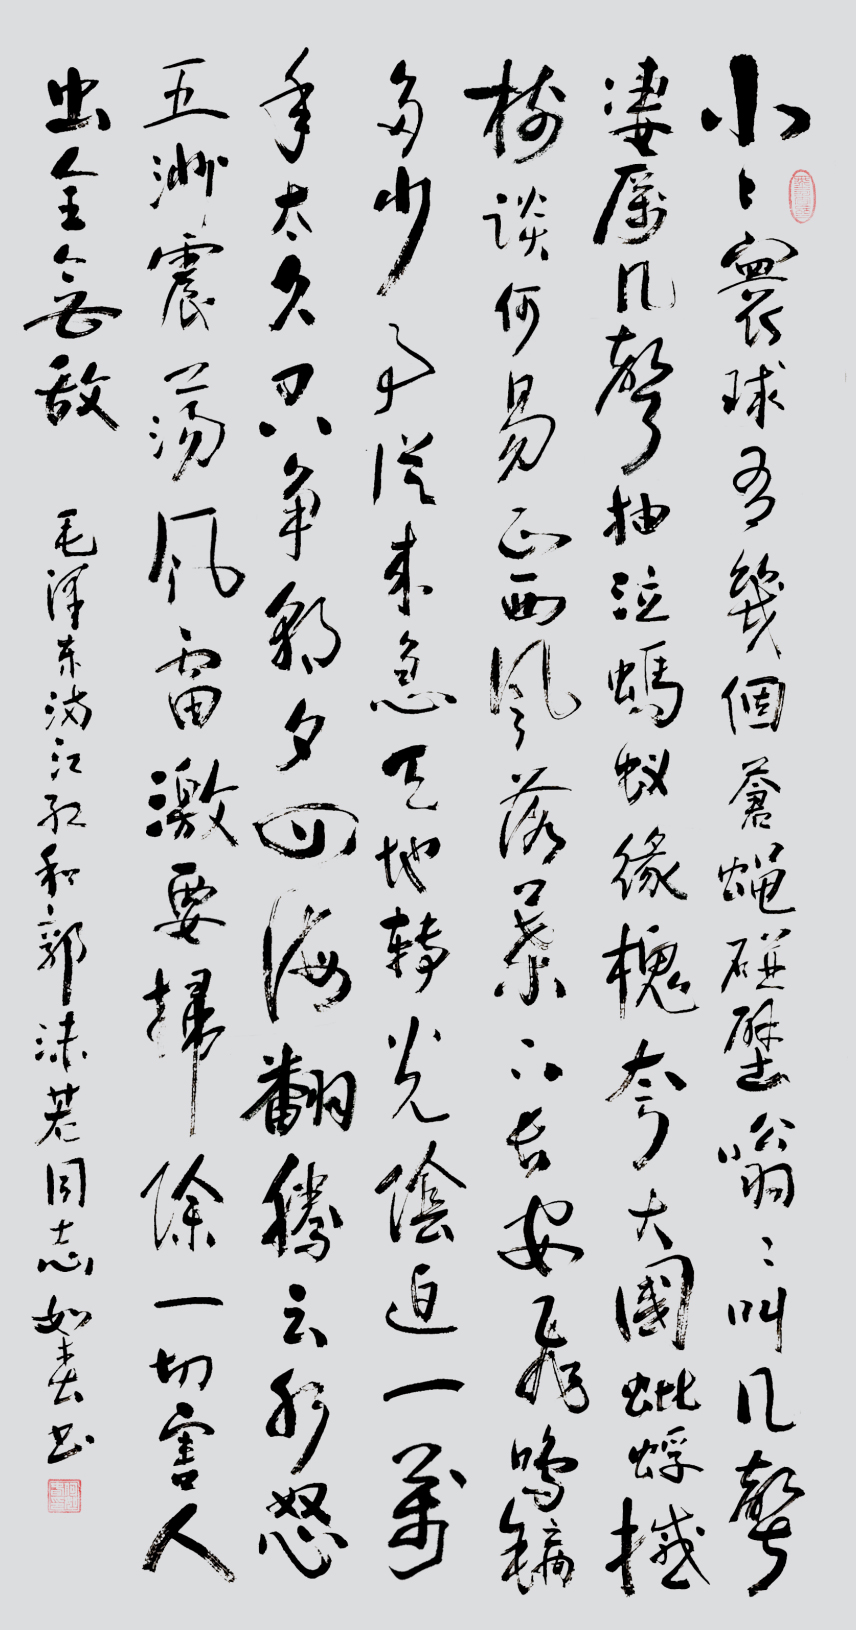 小〻寰球有幾個蒼蝇碰壁嗡〻叫几聲
凄厲几聲抽泣螞蚁緣槐夸大國蚍蜉撼
樹談何易正西風落葉下長安飛鳴鏑
多少事從來急天地轉光陰迫一萬
年太久只争朝夕四海翻騰云水怒
五洲震荡风雷激要掃除一切害人
虫全無敵 毛泽东满江红和郭沫若同志如春书